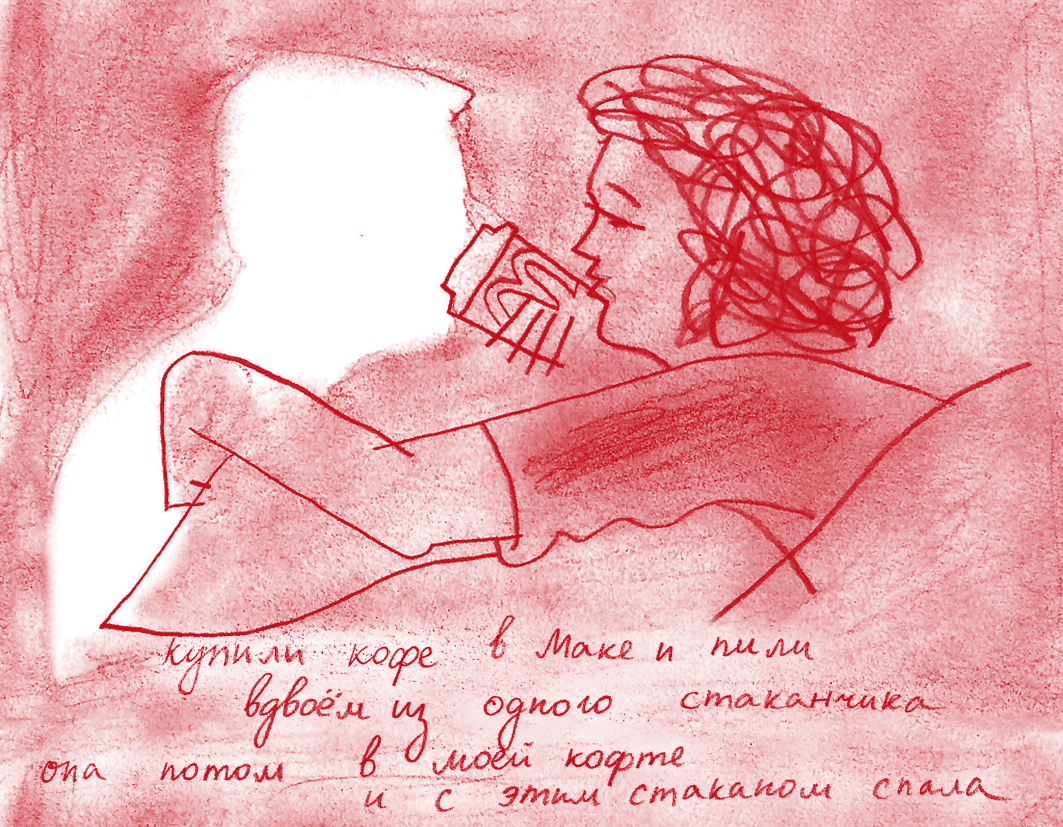 купили кофе в Маке и пили
вдвоём из одного стаканчика
она потом в моей кофте
и с этим стаканом спала